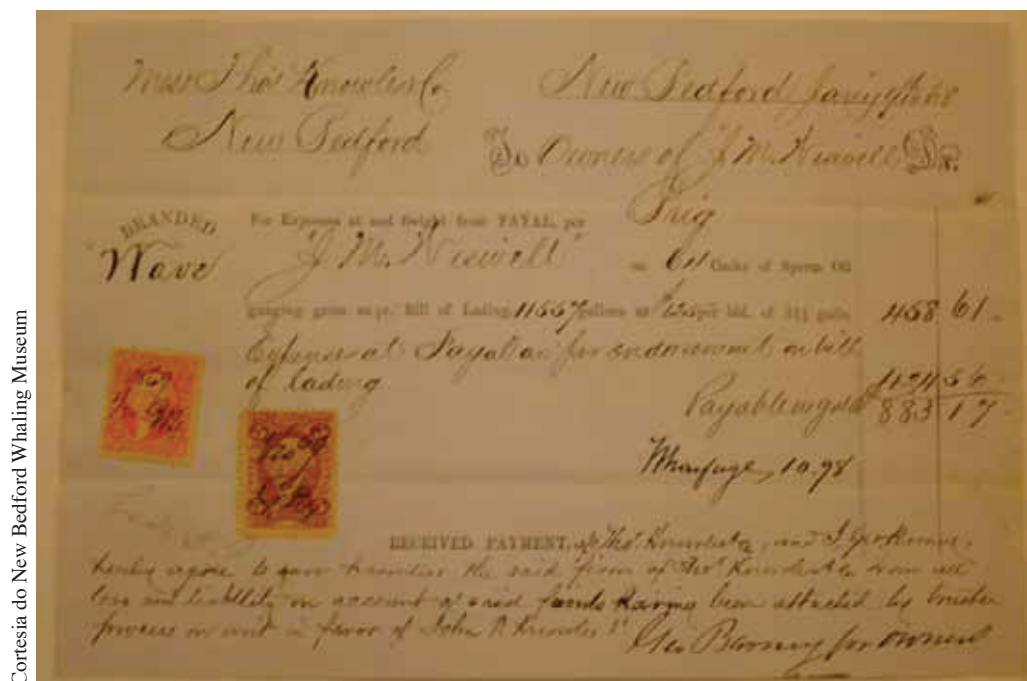 Cortesia do New Bedford Whaling Museum
Messr Thos Knowles & Co
New Bedford
New Bedford
To Owners of J. M. Dr.
BRANDED
"Wave"
For Expenses at and freight from FAYAL, per Brig
"J. M. " on 64 Casks of Sperm Oil
gauging gross as pr. Bill of Lading, 11557 gallons at per bbl. of 31½ galls. 458 61
Expenses at Fayal as per endorsement on bill
of lading
Payable in gold 883 17
Wharfage, 10.98
RECEIVED PAYMENT, of Thos. Knowles & Co, and I, Geo
hereby agree to the said firm of Thos Knowles & Co from all
loss and liability on account of said funds having been attached by trustee
process on writ in favor of John P. Knowles
Geo Barney for owners